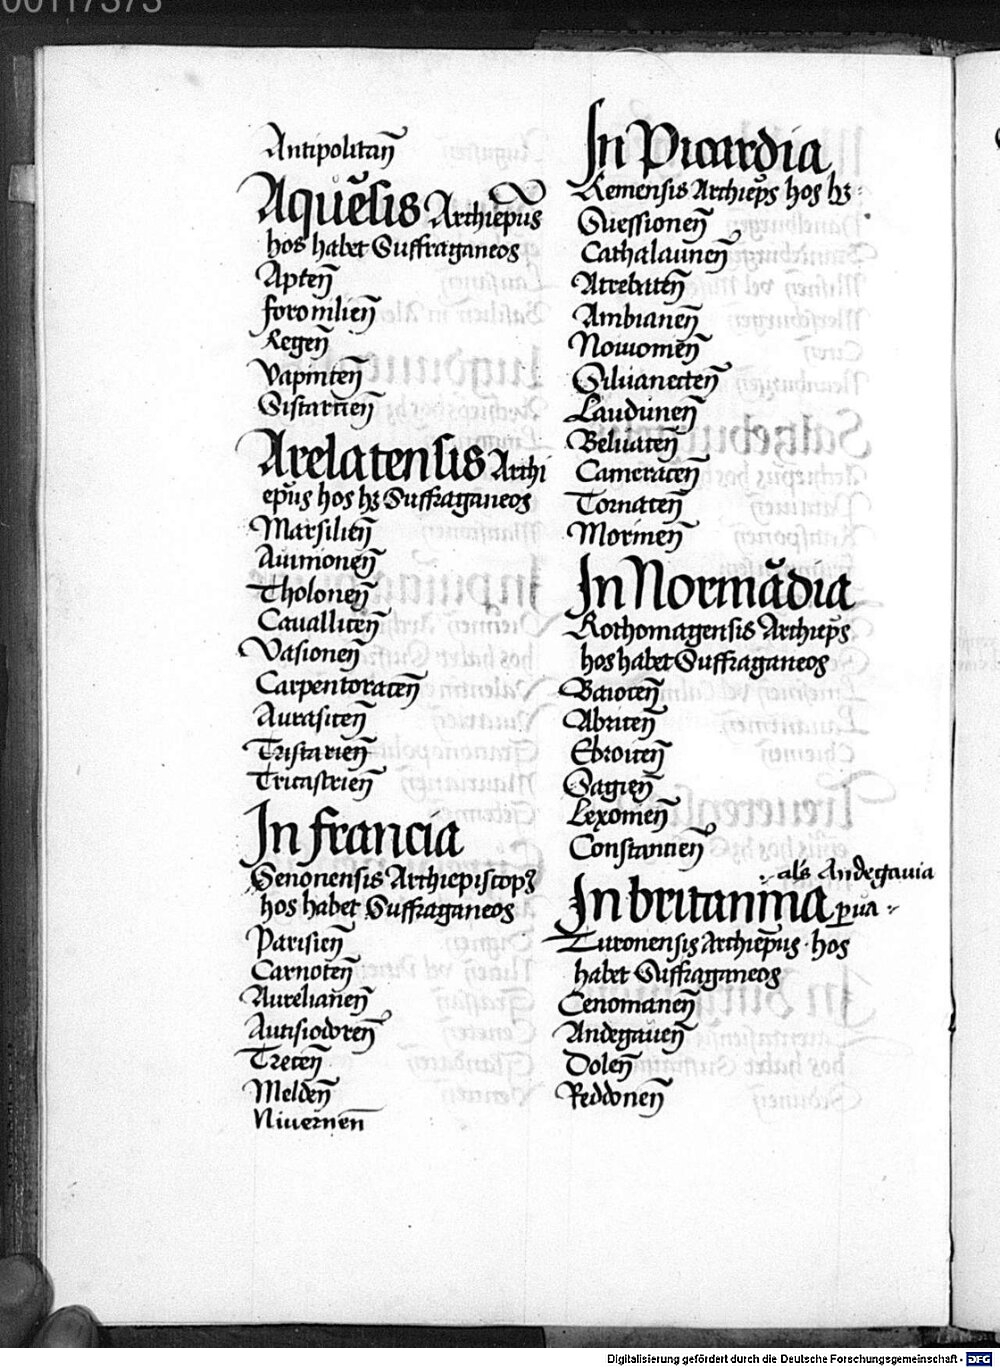 00117373
Antipolitan̄
Aquēsis Archiep̄us
hos habet Suffraganeos
Apten̄
foroiulien̄
Regen̄
Vapinten̄
Sistarıcen̄
Arelatensis Archi
ep̄us hos hꝫ Suffraganeos
Marsilien̄
Auinionen̄
Tholonen̄
Cauallicen̄
Vasionen̄
Carpentoracen̄
Aurasicen̄
Tristarien̄
Tricastrien̄
In francia
Senonensis Archiepiscopꝫ
hos habet Suffraganeos
Parisien̄
Carnoten̄
Aurelianen̄
Autisiodoren̄
Trecen̄
Melden̄
Niuernen̄
In Picardia
Remensis Archiep̄s hos hꝫ
Suessionen̄
Cathalaunen̄
Atrebaten̄
Ambianen̄
Nouiomen̄
Siluanecten̄
Laudunen̄
Beluacen̄
Cameracen̄
Tornacen̄
Morinen̄
In Normādia
Rothomagensis Archiep̄s
hos habet Suffraganeos
Baiocen̄
Abricen̄
Ebroicen̄
Sagien̄
Lexonien̄
Constancien̄
als Andegauia
In britannia ꝑua
Turonensis Archiep̄us hos
habet Suffraganeos
Cenomanen̄
Andegauen̄
Dolen̄
Reddonen̄
Digitalisierung gefördert durch die Deutsche Forschungsgemeinschaft - DFG